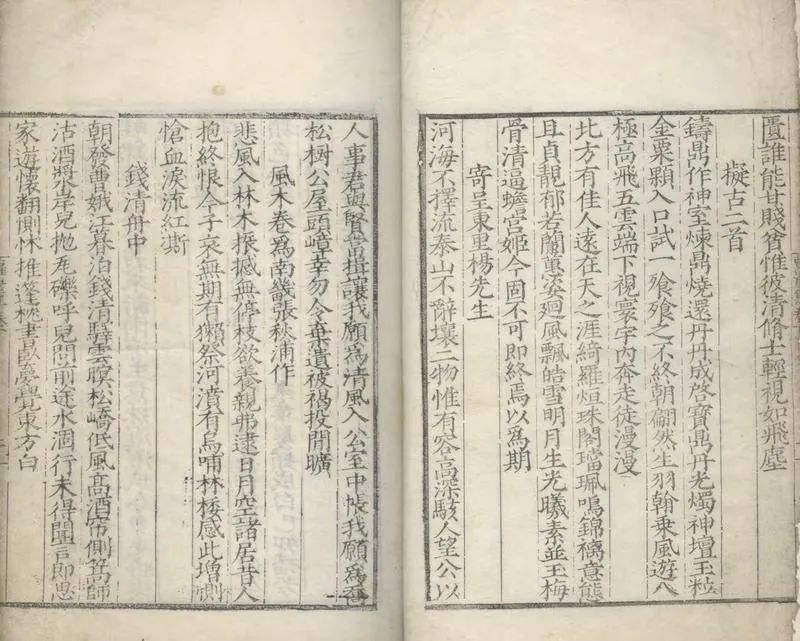 匱誰能甘賤貧惟彼清脩士輕視如飛塵
擬古二首
鑄鼎作神室煉鼎燒還丹丹成啓寶鼎丹光燭神壇玉粒
金粟顆入口試一飱飱之不終朝翩然生羽翰乘風遊八
極高飛五雲端下視寰宇內奔走徒漫漫
北方有佳人遠在天之涯綺羅烜珠閣璫珮鳴錦褵意態
且貞靚郁若蘭蕙姿廻風飄皓雪明月生光曦素並玉梅
骨清逼蟾宮姬今固不可即終焉以為期
寄呈東里楊先生
河海不擇流泰山不辭壤二物惟有容高深駭人望公以
人事君與賢嘗揖讓我願為清風入公室中帳我願為喬
松樹公屋頭嶂幸勿令棄遺被褐投開曠
風木卷為南畿張秋浦作
悲風入林木振撼無停枝欲養親弗逮日月空諸居昔人
抱終恨今子哀無期有獺祭河濆有烏哺林棲感此增惻
愴血淚流紅澌
錢清舟中
朝發曹娥江暮泊錢清驛雲暝松嶠低風高酒帘側篙師
沽酒將岸兒拋瓦礫呼兒問前途水涸行未得閩言即思
家遊懷翻惻怵推篷枕書臥夢覺東方白